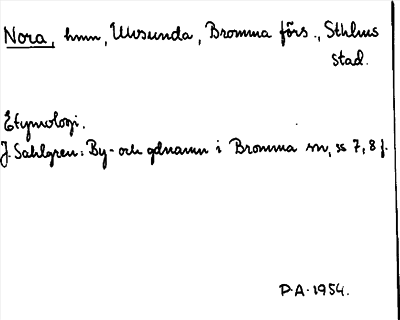 Nora, hmn, Ulvsunda, Bromma förs., Sthlms
stad.
Etymologi.
J. Sahlgren: By- och gdnamn i Bromma sn, ss 7, 8 f.
P.A. 1954.